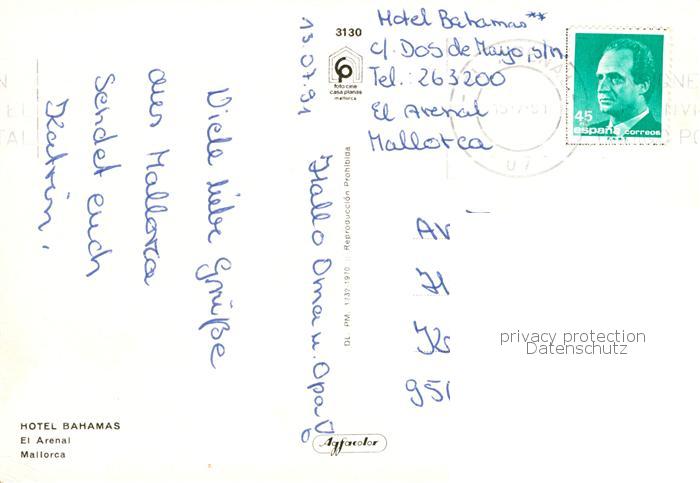 13.07.91
Hallo Oma u. Opa
Viele liebe Grüße
aus Mallorca
Sendet euch
Katrin.
HOTEL BAHAMAS
El Arenal
Mallorca
3130
foto cine
casa planas
mallorca
DL. PM. 1732-1970 - Reproducción Prohibida
Agfacolor
Hotel Bahamas**
c/. Dos de Mayo, s/n
Tel.: 263200
El Arenal
Mallorca
45
españa correos
07
951
privacy protection
Datenschutz